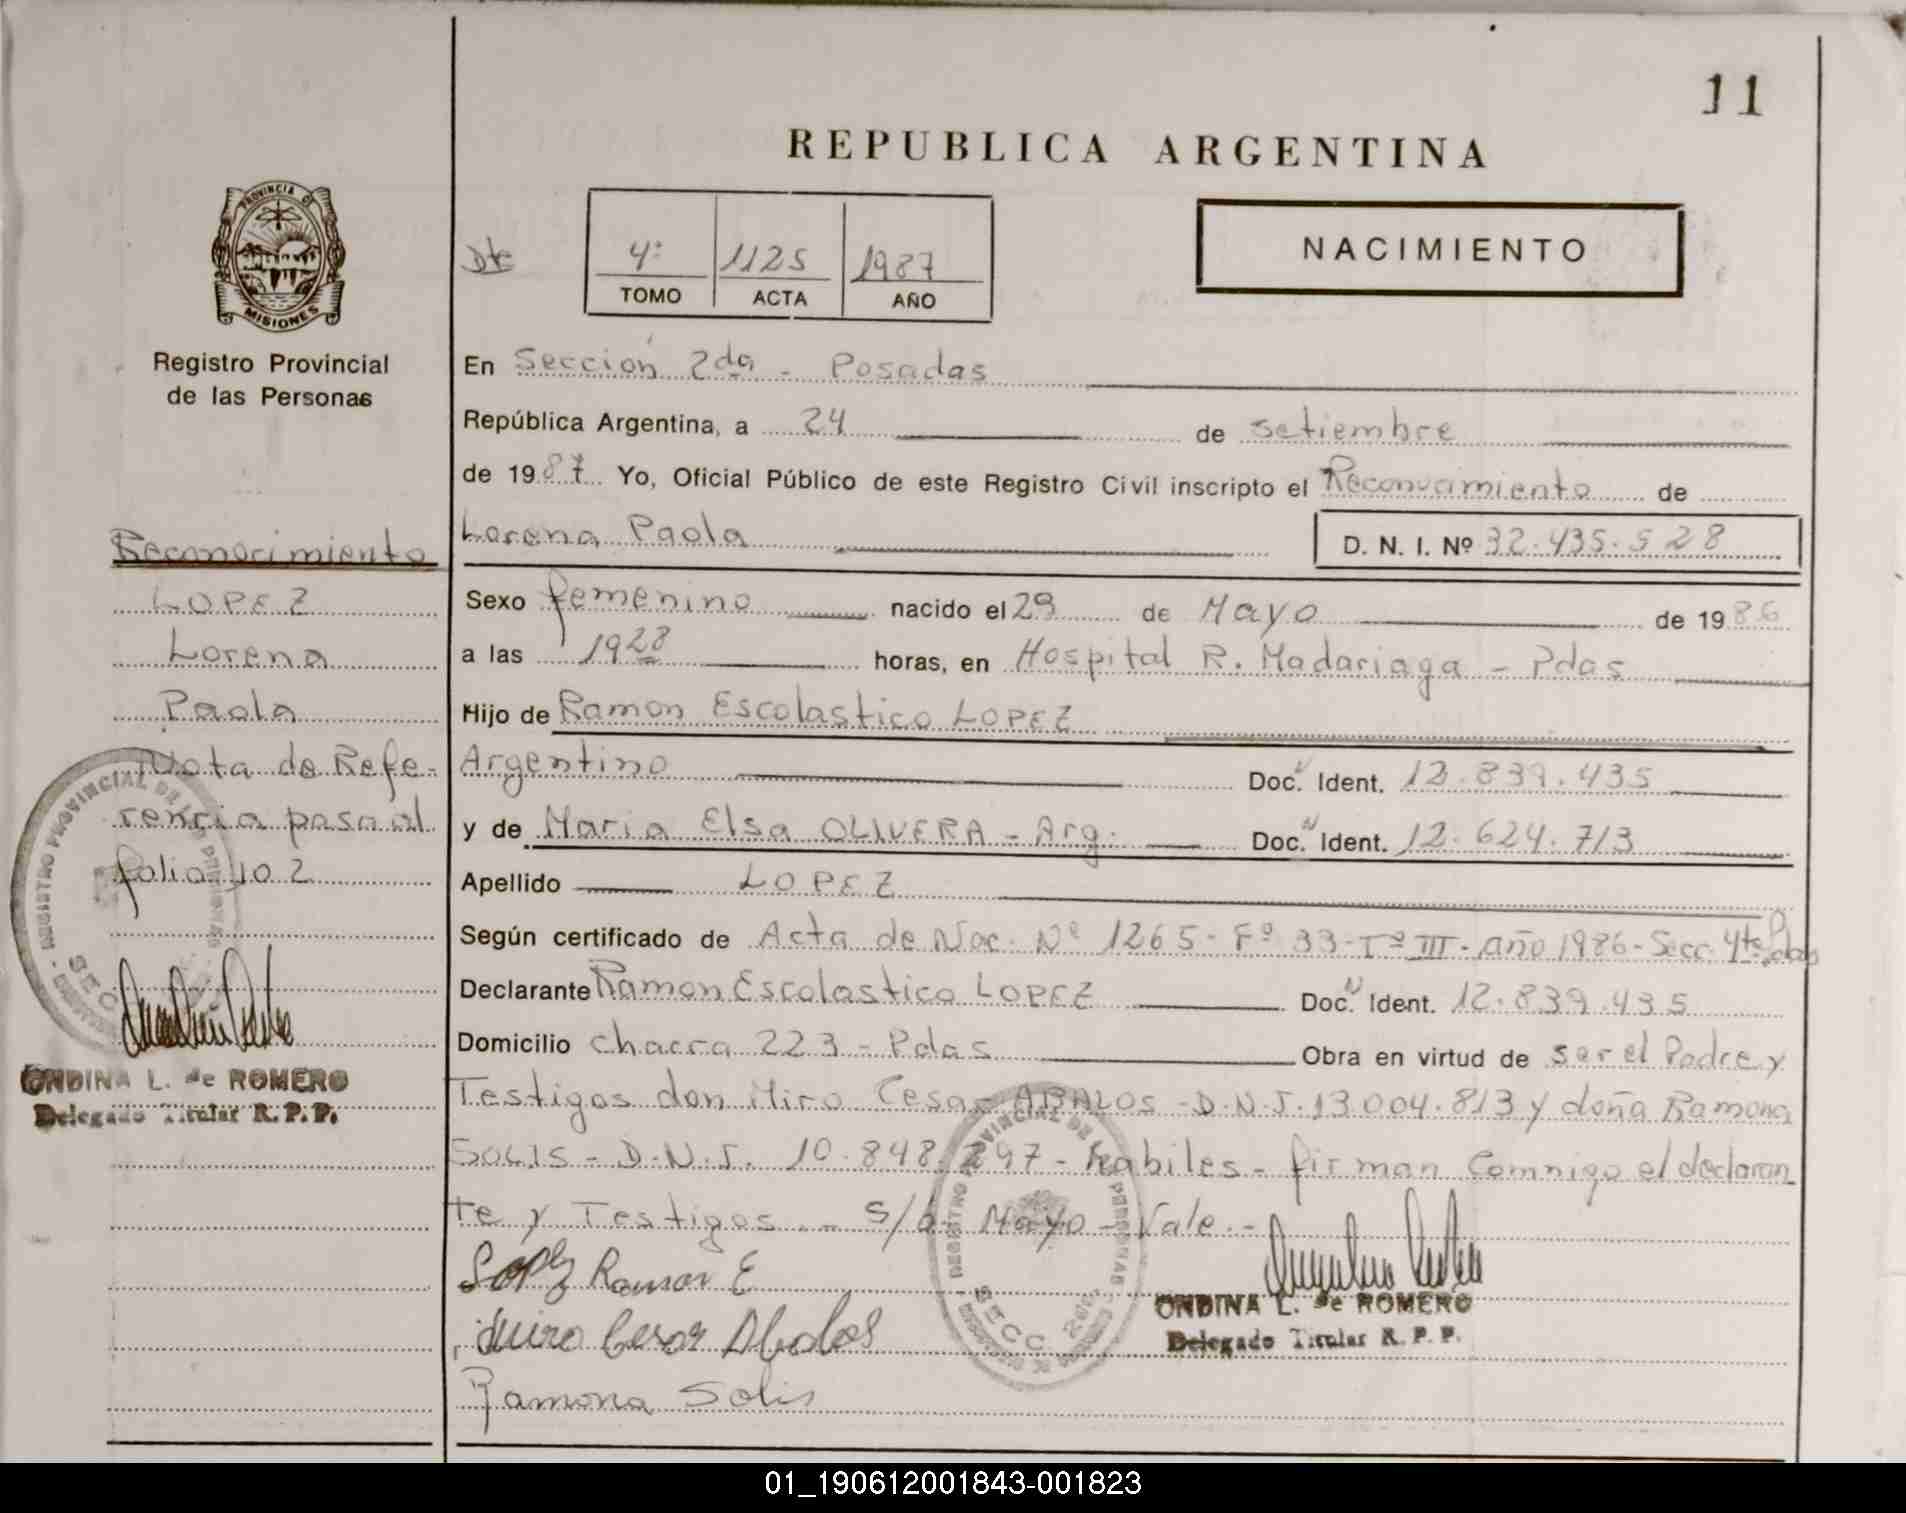 11
REPUBLICA ARGENTINA
PROVINCIA DE
MISIONES
Registro Provincial
de las Personas
Dte
4º 1125 1987
TOMO ACTA AÑO
NACIMIENTO
En Sección 2da - Posadas
República Argentina, a 24 de setiembre
de 1987. Yo, Oficial Público de este Registro Civil inscripto el Reconocimiento de
Lorena Paola D. N. I. Nº 32.435.528
Sexo femenino nacido el 29 de Mayo de 1986
a las 1928 horas, en Hospital R. Madariaga - Pdas
Hijo de Ramon Escolastico LOPEZ
Argentino Doc. N Ident. 12.839.435
y de Maria Elsa OLIVERA - Arg. Doc. N Ident. 12.624.713
Apellido LOPEZ
Según certificado de Acta de Nac. Nº 1265 - Fº 33 - Tº III - año 1986 - Secc. 4ta Pdas
Declarante Ramon Escolastico LOPEZ Doc. N Ident. 12.839.435
Domicilio chacra 223 - Pdas Obra en virtud de ser el Padre y
Testigos don Miro Cesar ABALOS - D.N.I. 13.004.813 y doña Ramona
SOLIS - D.N.I. 10.848.297 - habiles - firman Comnigo el declaran
te y Testigos. - S/b Mayo - Vale. -
Lopez Ramon E
Miro Cesar Abalos
Ramona Solis
ONDINA L. de ROMERO
Delegado Titular R. P. P.
REGISTRO PROVINCIAL DE LAS PERSONAS
SECC.
Reconocimiento
LOPEZ
Lorena
Paola
Nota de Refe-
rencia pasa al
folio 102
REGISTRO PROVINCIAL DE LAS PERSONAS
SECC
ONDINA L. de ROMERO
Delegado Titular R. P. P.
01_190612001843-001823